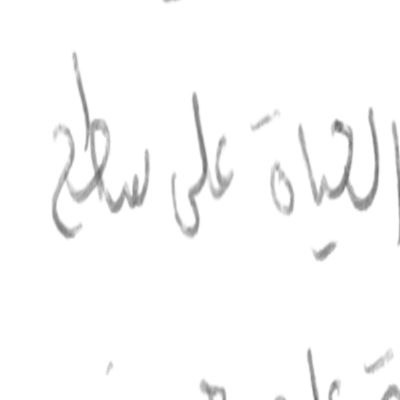 الحياة على سطح